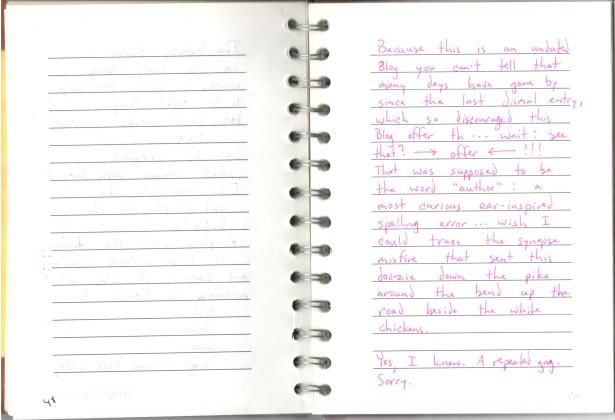 Because this is an undated
Blog you can't tell that
many days have gone by
since the last dismal entry,
which so discouraged this
Blog offer th... wait: see
that? → offer ← !!!
That was supposed to be
the word "author": a
most curious ear-inspired
spelling error... wish I
could trace the synapse
misfire that sent this
doo-zie down the pike
around the bend up the
road beside the white
chickens.
Yes, I know. A repeated gag.
Sorry.